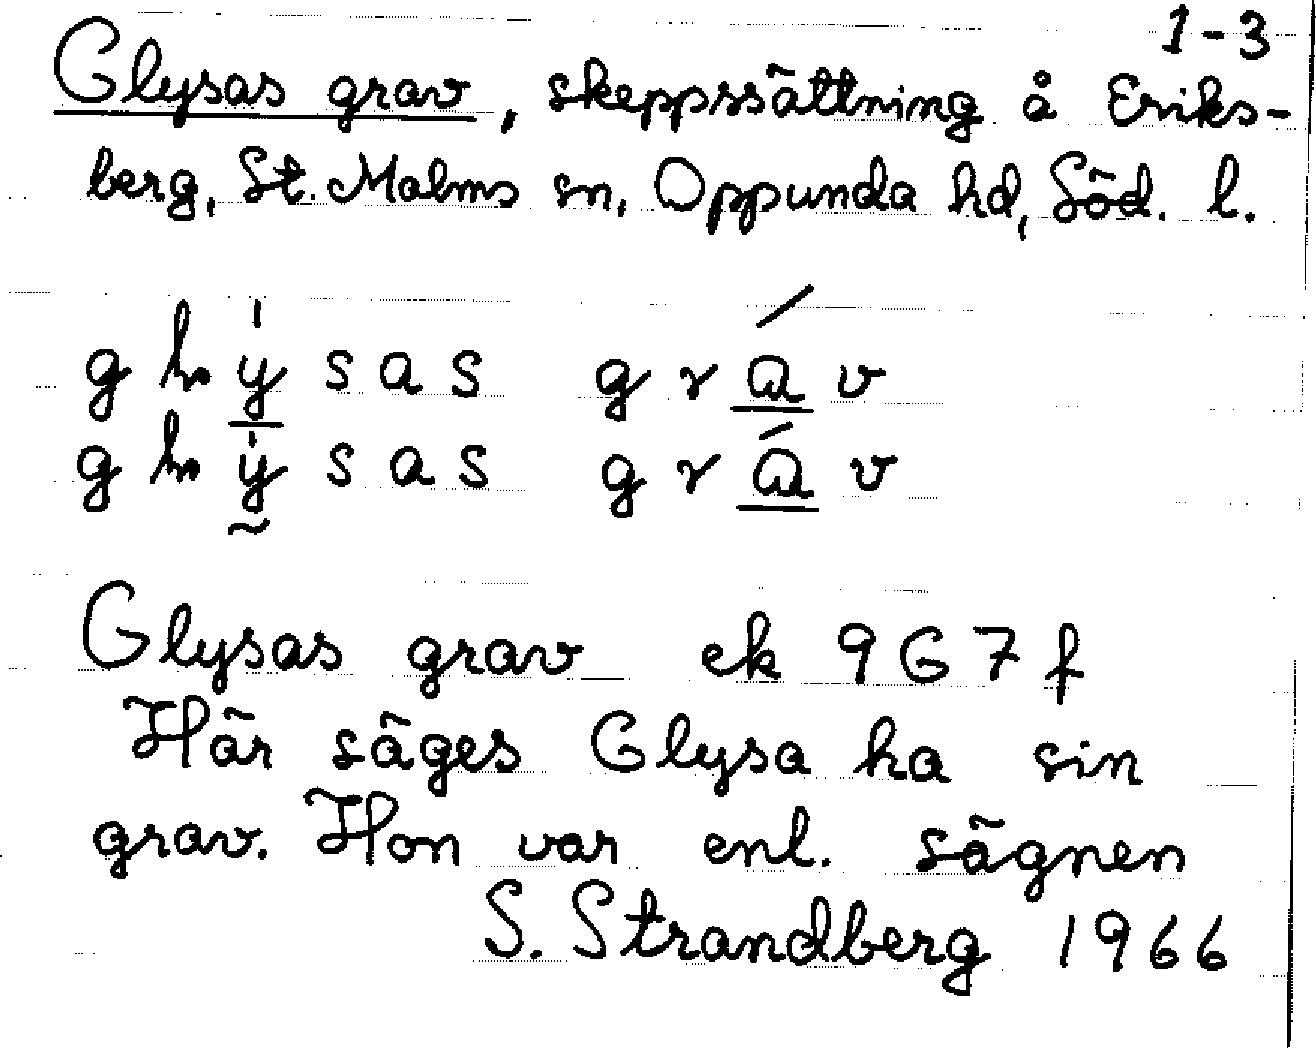 1-3
Glysas grav, skeppssättning å Eriks-
berg, St. Malms sn, Oppunda hd, Söd. l.
g l y s a s g r a v
g l y s a s g r a v
Glysas grav ek 9G7f
Här säges Glysa ha sin
grav. Hon var enl. sägnen
S. Strandberg 1966